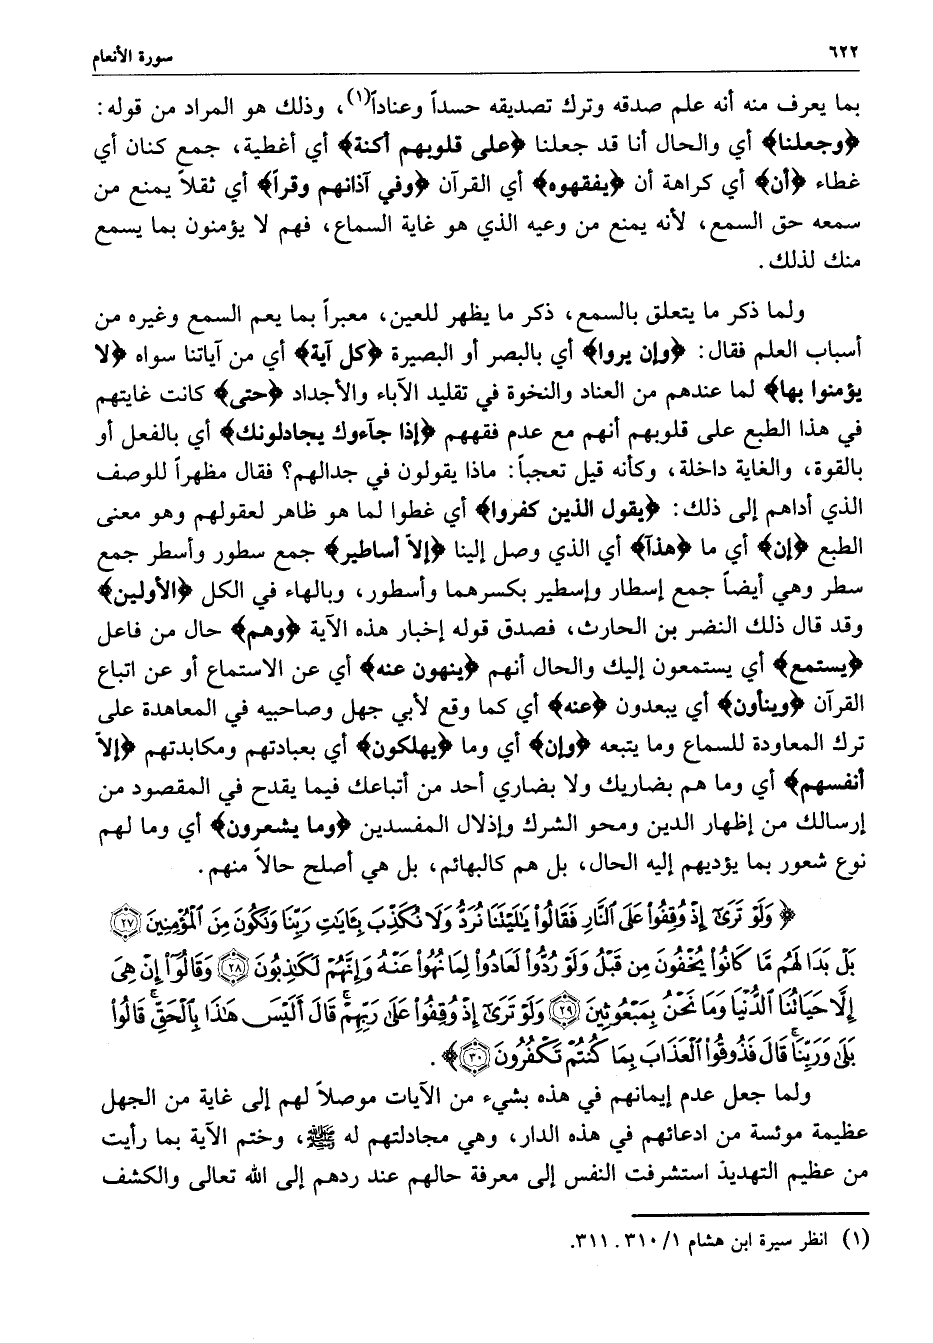 ٦٢٢ سورة الأنعام
بما يعرف منه أنه علم صدقه وترك تصديقه حسداً وعناداً(١)، وذلك هو المراد من قوله:
﴿وجعلنا﴾ أي والحال أنا قد جعلنا ﴿على قلوبهم أكنة﴾ أي أغطية، جمع كنان أي
غطاء ﴿أن﴾ أي كراهة أن ﴿يفقهوه﴾ أي القرآن ﴿وفي آذانهم وقراً﴾ أي ثقلاً يمنع من
سمعه حق السمع، لأنه يمنع من وعيه الذي هو غاية السماع، فهم لا يؤمنون بما يسمع
منك لذلك.
ولما ذكر ما يتعلق بالسمع، ذكر ما يظهر للعين، معبراً بما يعم السمع وغيره من
أسباب العلم فقال: ﴿وإن يروا﴾ أي بالبصر أو البصيرة ﴿كل آية﴾ أي من آياتنا سواه ﴿لا
يؤمنوا بها﴾ لما عندهم من العناد والنخوة في تقليد الآباء والأجداد ﴿حتى﴾ كانت غايتهم
في هذا الطبع على قلوبهم أنهم مع عدم فقههم ﴿إذا جآءوك يجادلونك﴾ أي بالفعل أو
بالقوة، والغاية داخلة، وكأنه قيل تعجباً: ماذا يقولون في جدالهم؟ فقال مظهراً للوصف
الذي أداهم إلى ذلك: ﴿يقول الذين كفروا﴾ أي غطوا لما هو ظاهر لعقولهم وهو معنى
الطبع ﴿إن﴾ أي ما ﴿هذآ﴾ أي الذي وصل إلينا ﴿إلاّ أساطير﴾ جمع سطور وأسطر جمع
سطر وهي أيضاً جمع إسطار وإسطير بكسرهما وأسطور، وبالهاء في الكل ﴿الأولين﴾
وقد قال ذلك النضر بن الحارث، فصدق قوله إخبار هذه الآية ﴿وهم﴾ حال من فاعل
﴿يستمع﴾ أي يستمعون إليك والحال أنهم ﴿ينهون عنه﴾ أي عن الاستماع أو عن اتباع
القرآن ﴿وينأون﴾ أي يبعدون ﴿عنه﴾ أي كما وقع لأبي جهل وصاحبيه في المعاهدة على
ترك المعاودة للسماع وما يتبعه ﴿وإن﴾ أي وما ﴿يهلكون﴾ أي بعبادتهم ومكابدتهم ﴿إلاّ
أنفسهم﴾ أي وما هم بضاريك ولا بضاري أحد من أتباعك فيما يقدح في المقصود من
إرسالك من إظهار الدين ومحو الشرك وإذلال المفسدين ﴿وما يشعرون﴾ أي وما لهم
نوع شعور بما يؤديهم إليه الحال، بل هم كالبهائم، بل هي أصلح حالاً منهم.
﴿وَلَوْ تَرَىٰٓ إِذْ وُقِفُوا۟ عَلَى ٱلنَّارِ فَقَالُوا۟ يَٰلَيْتَنَا نُرَدُّ وَلَا نُكَذِّبَ بِـَٔايَٰتِ رَبِّنَا وَنَكُونَ مِنَ ٱلْمُؤْمِنِينَ ﴿٢٧﴾
بَلْ بَدَا لَهُم مَّا كَانُوا۟ يُخْفُونَ مِن قَبْلُ وَلَوْ رُدُّوا۟ لَعَادُوا۟ لِمَا نُهُوا۟ عَنْهُ وَإِنَّهُمْ لَكَٰذِبُونَ ﴿٢٨﴾ وَقَالُوٓا۟ إِنْ هِىَ
إِلَّا حَيَاتُنَا ٱلدُّنْيَا وَمَا نَحْنُ بِمَبْعُوثِينَ ﴿٢٩﴾ وَلَوْ تَرَىٰٓ إِذْ وُقِفُوا۟ عَلَىٰ رَبِّهِمْ ۚ قَالَ أَلَيْسَ هَٰذَا بِٱلْحَقِّ ۚ قَالُوا۟
بَلَىٰ وَرَبِّنَا ۚ قَالَ فَذُوقُوا۟ ٱلْعَذَابَ بِمَا كُنتُمْ تَكْفُرُونَ ﴿٣٠﴾﴾.
ولما جعل عدم إيمانهم في هذه بشيء من الآيات موصلاً لهم إلى غاية من الجهل
عظيمة موئسة من ادعائهم في هذه الدار، وهي مجادلتهم له ﷺ، وختم الآية بما رأيت
من عظيم التهديذ استشرفت النفس إلى معرفة حالهم عند ردهم إلى الله تعالى والكشف
(١) انظر سيرة ابن هشام ١/ ٣١٠ . ٣١١.